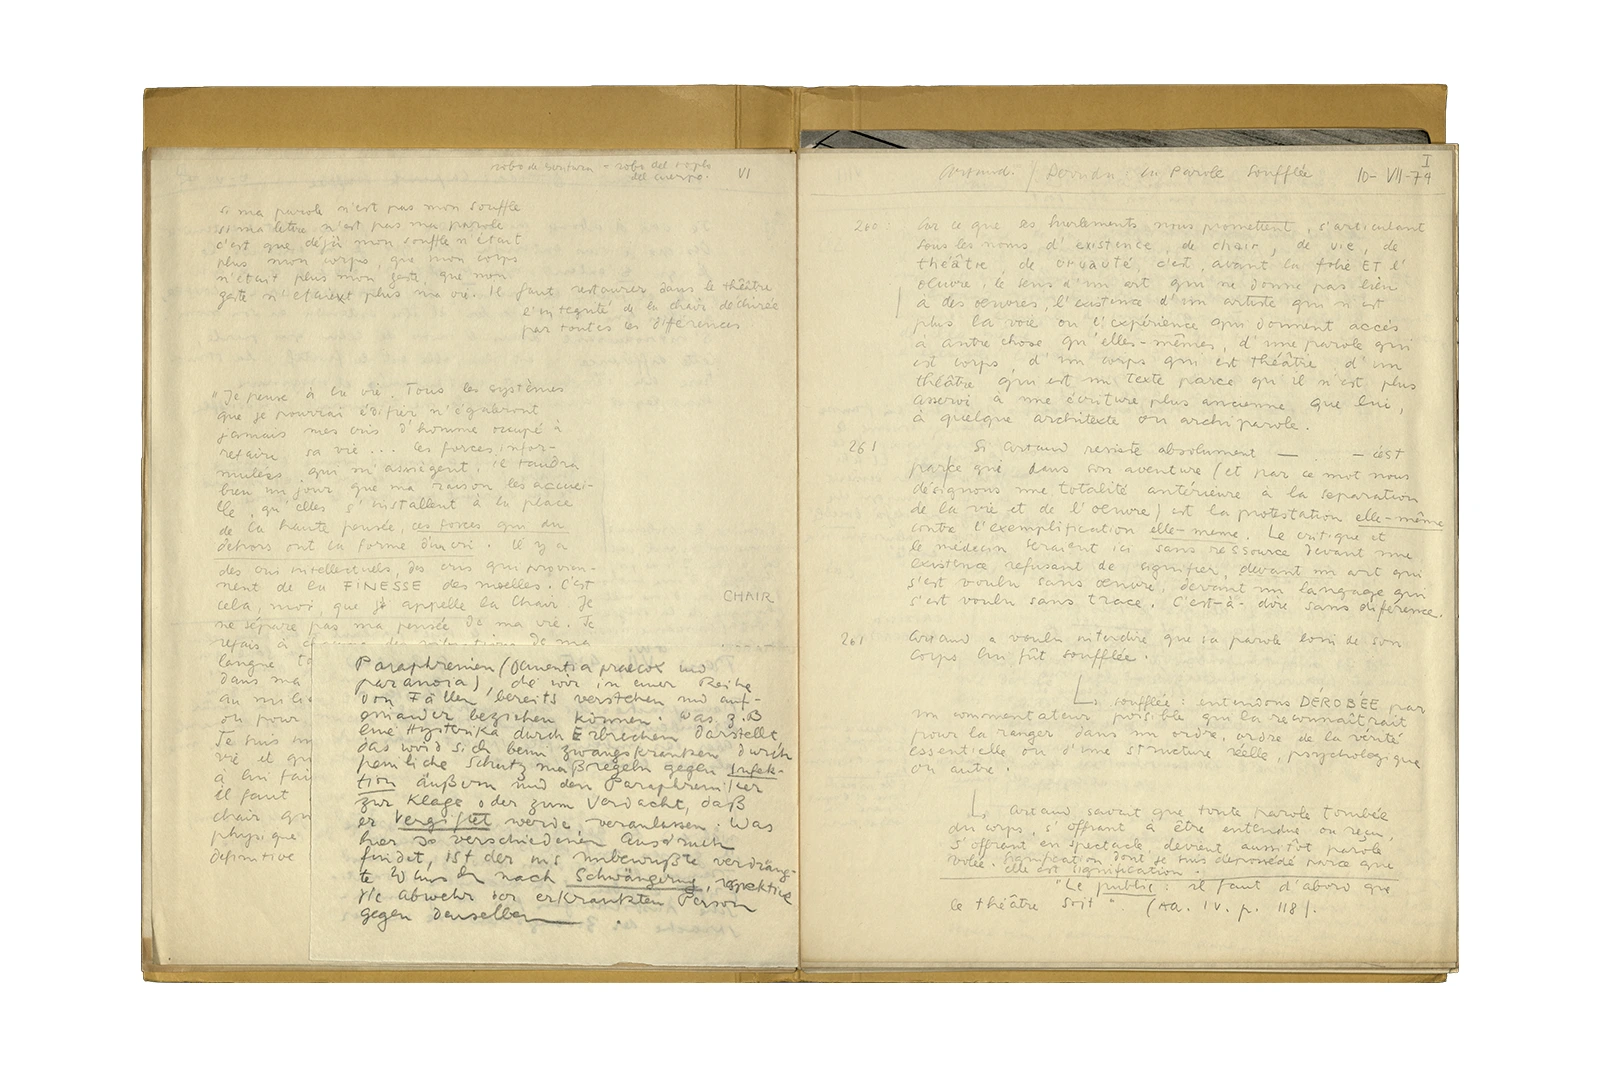 robo de escritura = robo del soplo
del cuerpo.
VI
si ma parole n'est pas mon souffle
si ma lettre n'est pas ma parole
c'est que déjà mon souffle n'était
plus mon corps, que mon corps
n'était plus mon geste, que mon
geste n'étaient plus ma vie. Il faut restaurer dans le théâtre
l'integrité de la chair dechirée
par toutes les differences
"Je pense à la vie. Tous les systèmes
que je pourrai édifier n'égaleront
jamais mes cris d'homme occupé à
refaire sa vie... Ces forces infor-
mulées qui m'assiègent, il faudra
bien un jour que ma raison les accuei-
lle, qu'elles s'installent à la place
de la haute pensée, ces forces qui du
dehors ont la forme d'un cri. Il y a
des cris intellectuels, des cris qui provien-
nent de la FINESSE des moelles. C'est
cela, moi, que je appelle la Chair. Je
CHAIR
ne sépare pas ma pensée de ma vie. Je
refais à de ma
langue
dans ma
au milie
ou pour
Je suis
vie et qu
à lui fai
il faut
chair qu
physique
définitive
Paraphrenien (Dementia praecox und
paranoia), die wir in einer Reihe
von Fällen bereits verstehen und auf-
einander beziehen können. Was z.B
eine Hysterika durch Erbrechen darstellt
das wird sich beim zwangskranken durch
peinliche Schutzmaßregeln gegen Infek-
tion äußern und den Paraphreniker
zur Klage oder zum Verdacht, daß
er Vergiftet werde veranlassen. Was
hier so verschiedenen Ausdruck
findet, ist der ins unbewußte verdräng-
te Wunsch nach Schwängerung, respektive
die Abwehr der erkrankten Person
gegen denselben.
I
Artaud. / Derrida: La Parole Soufflée 10-VII-74
260: Car ce que ses hurlements nous promettent, s'articulant
sous les noms d'existence, de chair, de vie, de
théâtre, de cruauté, c'est, avant la folie ET l'
oeuvre, le sens d'un art qui ne donne pas lieu
à des oeuvres, l'existence d'un artiste qui n'est
plus la voie ou l'expérience qui donnent accès
à autre chose qu'elles-mêmes, d'une parole qui
est corps, d'un corps qui est théâtre, d'un
théâtre qui est un texte parce qu'il n'est plus
asservi à une écriture plus ancienne que lui,
à quelque architexte ou archiparole.
261 Si Artaud resiste absolument — — c'est
parce que dans son aventure (et par ce mot nous
désignons une totalité antérieure à la separation
de la vie et de l'oeuvre) est la protestation elle-même
contre l'exemplification elle-meme. Le critique et
le médecin seraient ici sans ressource devant une
existence refusant de signifier, devant un art qui
s'est voulu sans œuvre, devant un langage qui
s'est voulu sans trace. C'est-à-dire sans diférence.
261 Artaud a voulu interdire que sa parole loin de son
corps lui fût soufflée.
soufflée: entendons DÉROBÉE par
un commentateur possible qui la reconnaîtrait
pour la ranger dans un ordre, ordre de la vérité
essentielle ou d'une structure réelle, psychologique
ou autre.
Artaud savait que toute parole tombée
du corps, s'offrant à être entendue ou reçue,
s'offrant en spectacle, devient aussitôt parole
volée. Signification dont je suis dépossédé parce que
elle est signification.
"Le public: il faut d'abord que
ce théâtre soit". (Aa. IV. p. 118).